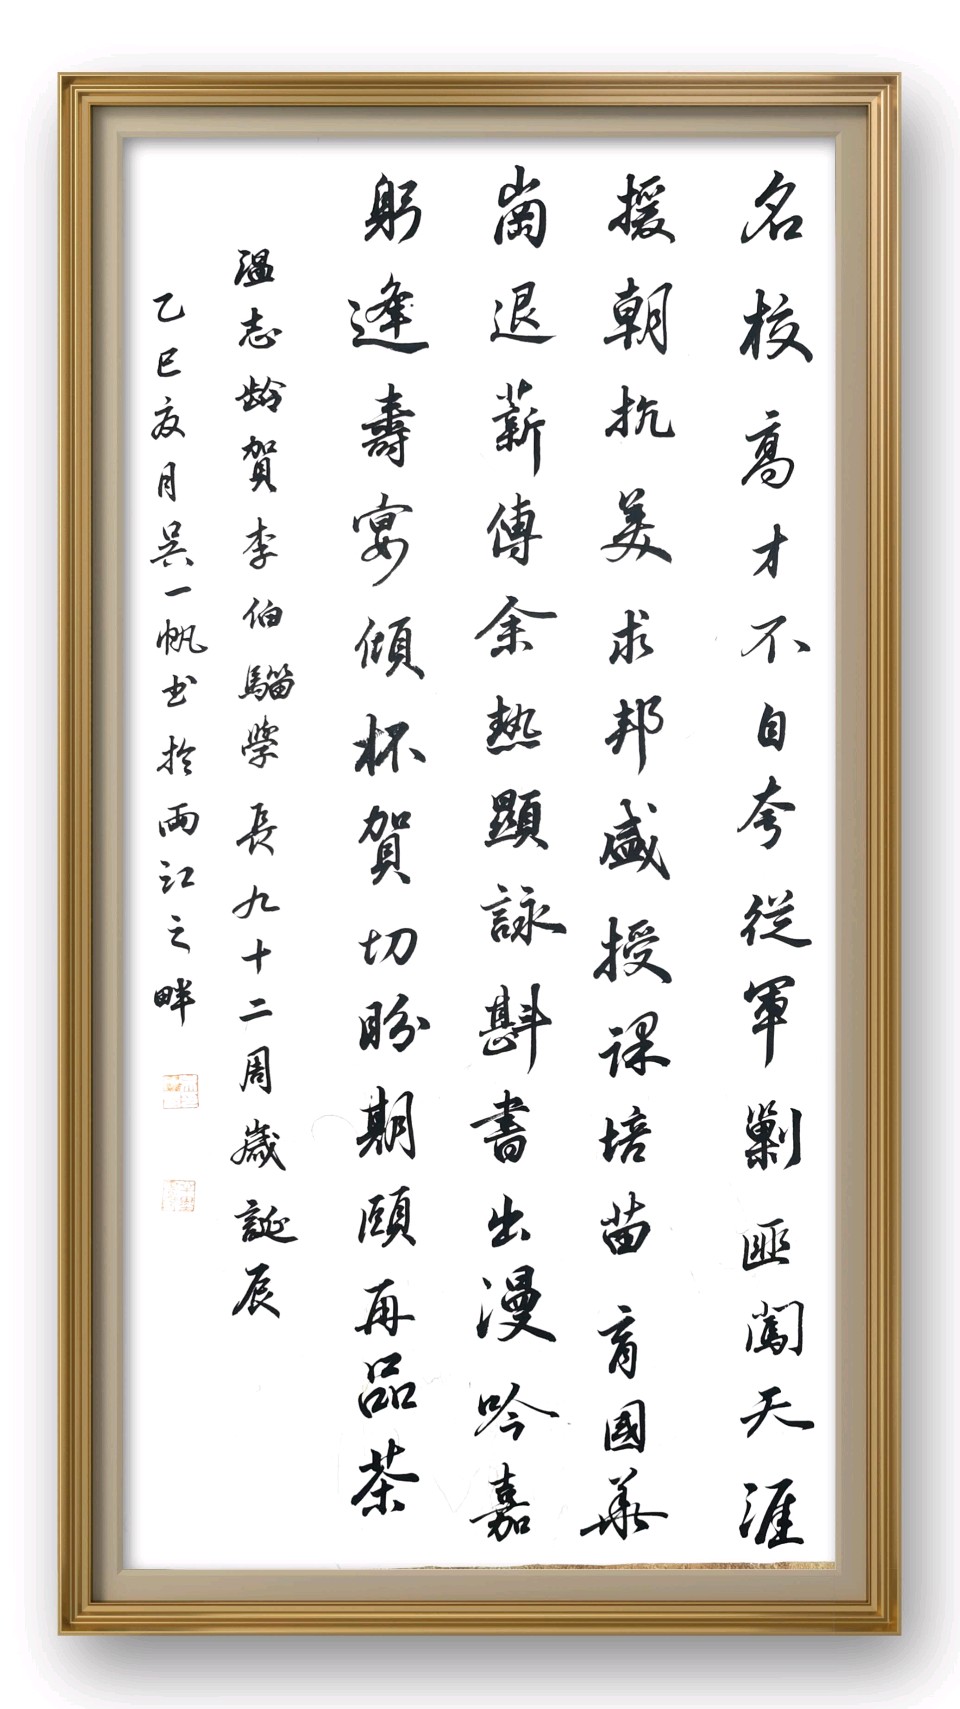 名校高才不自夸從軍剿匪闖天涯
援朝抗美求邦盛授課培苗育國華
崗退薪傳余熱顯詠斟書出漫吟嘉
躬逢壽宴傾杯賀切盼期頤再品茶
溫志齡賀李伯騮學長九十二周歲誕辰
乙巳亥月吴一帆书於兩江之畔